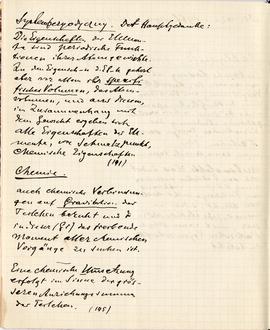 Die Eigenschaften der Elemen-
te sind periodische Funk-
tionen ihrer Atomgewichte.
Zu den Eigensch. d. El. gehört
aber vor allem ihr spezifi-
sches Volumen, das Atom-
volumen, und aus diesem,
im Zusammenhang mit
dem Gewicht ergeben sich
alle Eigenschaften der Ele-
mente, wie Schmelzpunkt,
chemische Eigenschaften
(191)
Chemie.
auch chemische Verbindun-
gen auf Gravitation der
Teilchen beruht und
das treibende
Moment aller chemischen
Vorgänge zu suchen ist.
Eine chemische Umsetzung
erfolgt im Sinne der grös-
seren Anziehungssumme
der Teilchen. (195)